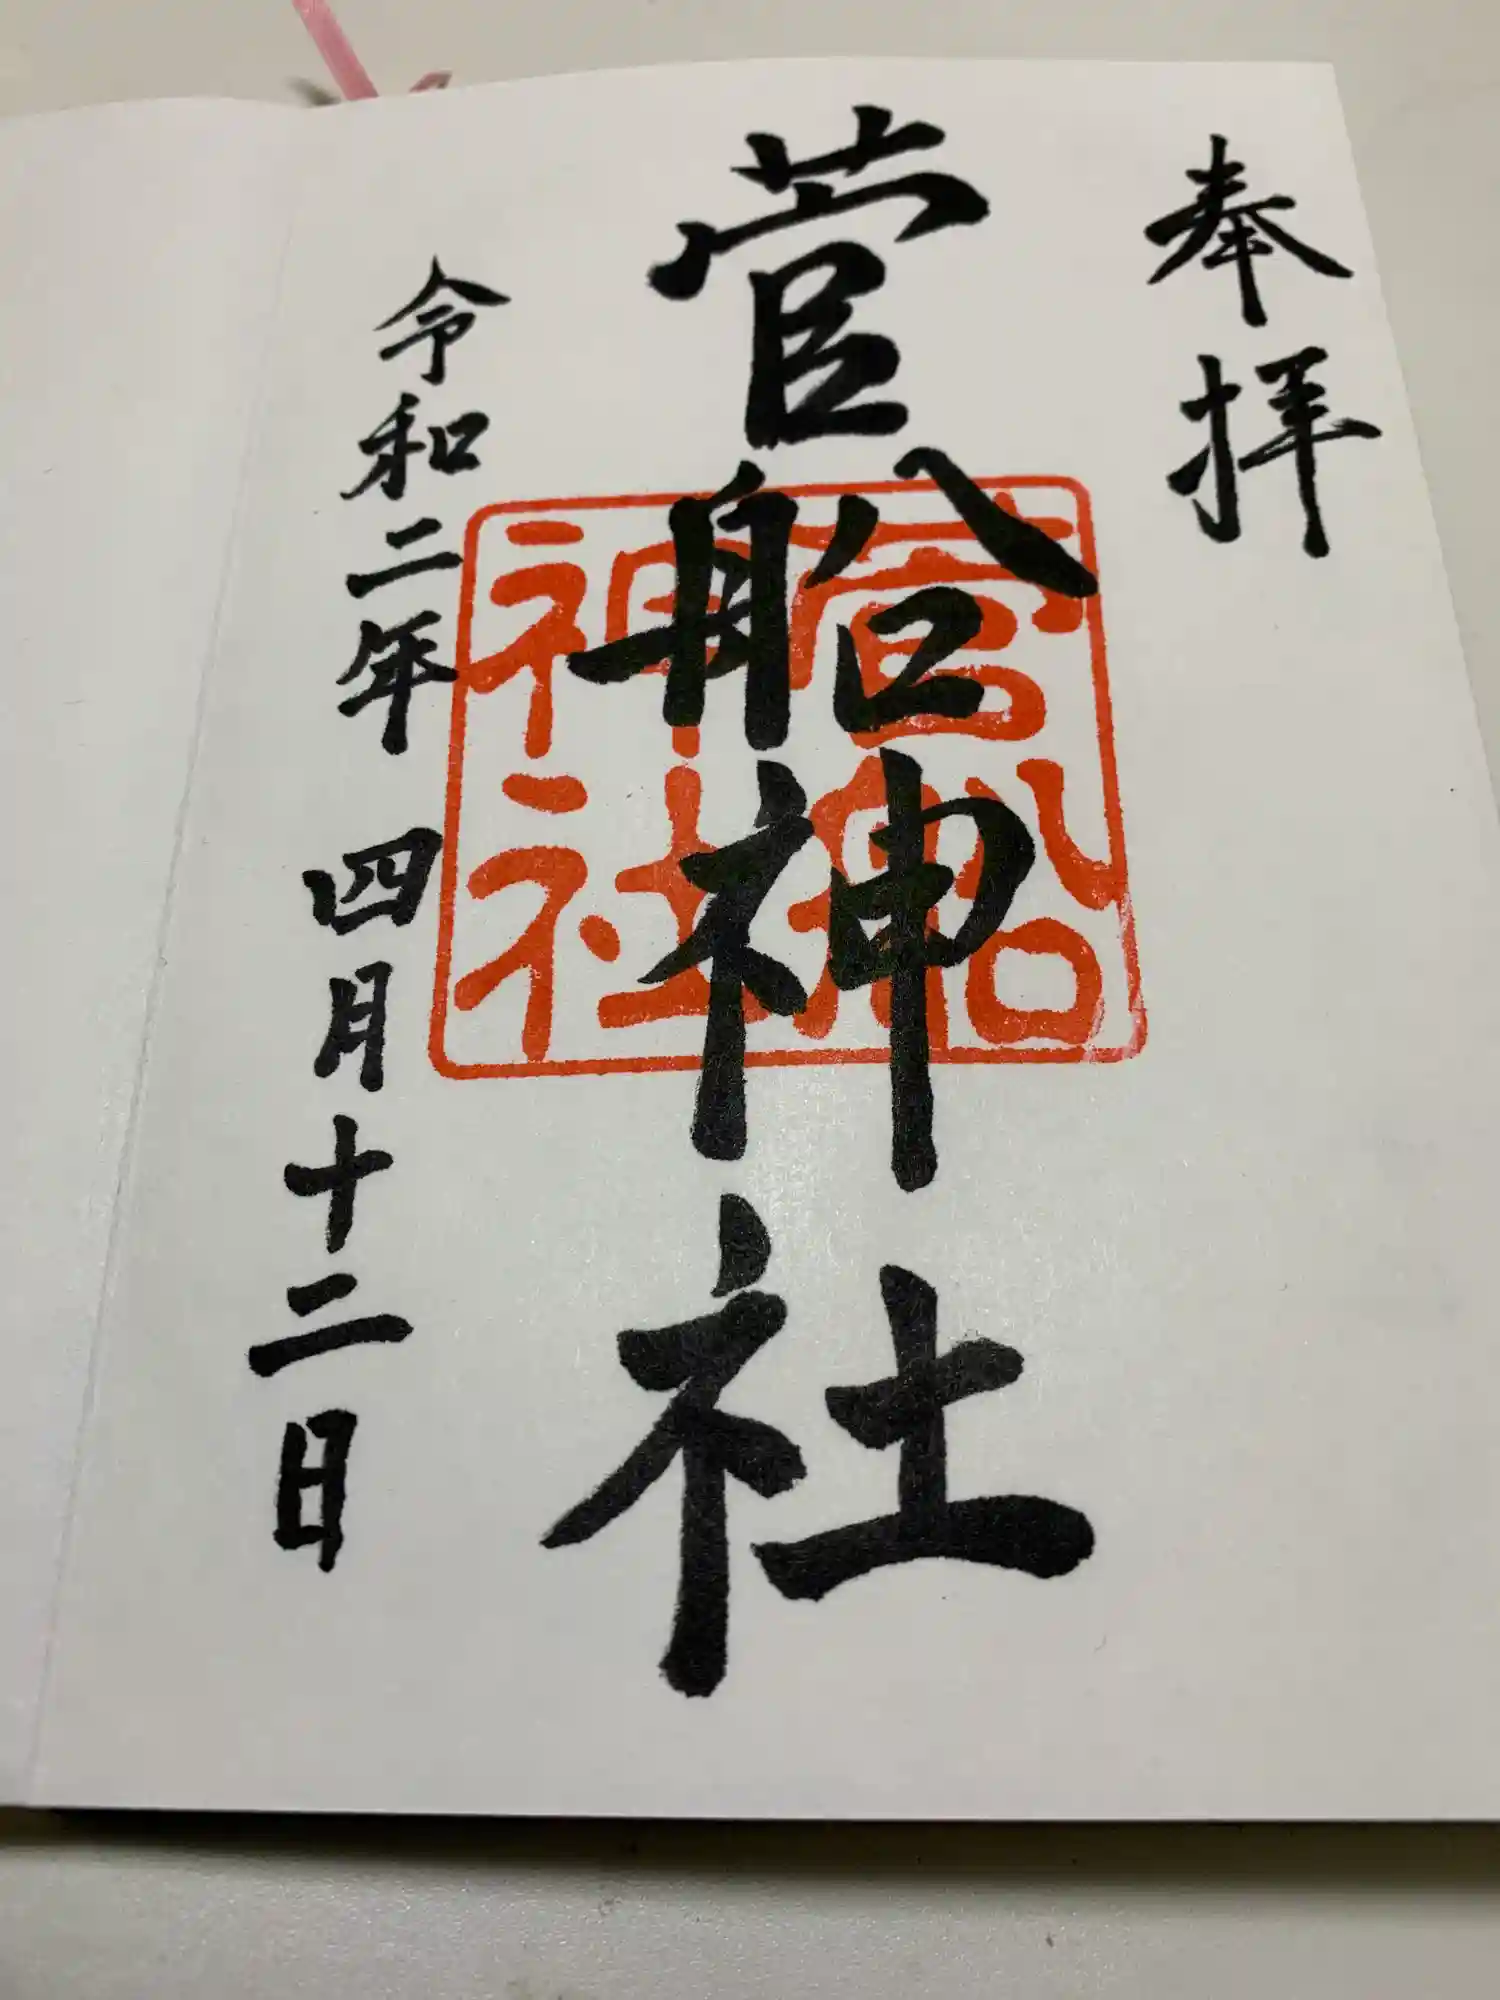 奉拝
菅船神社
菅船
神社
令和二年 四月十二日